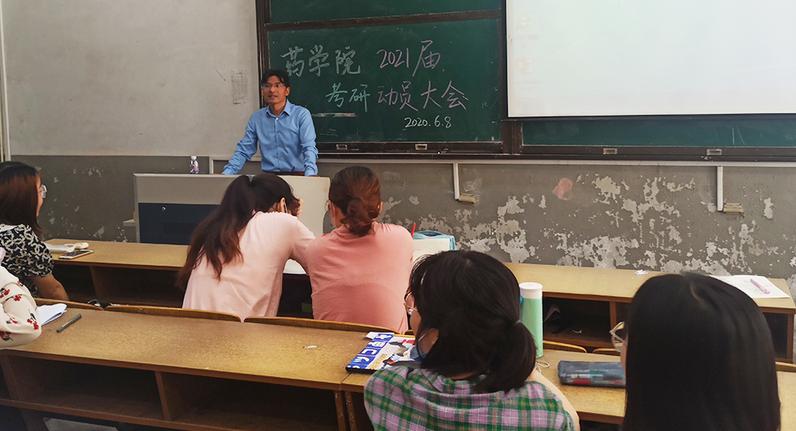 药学院 2021届
考研动员大会
2020.6.8